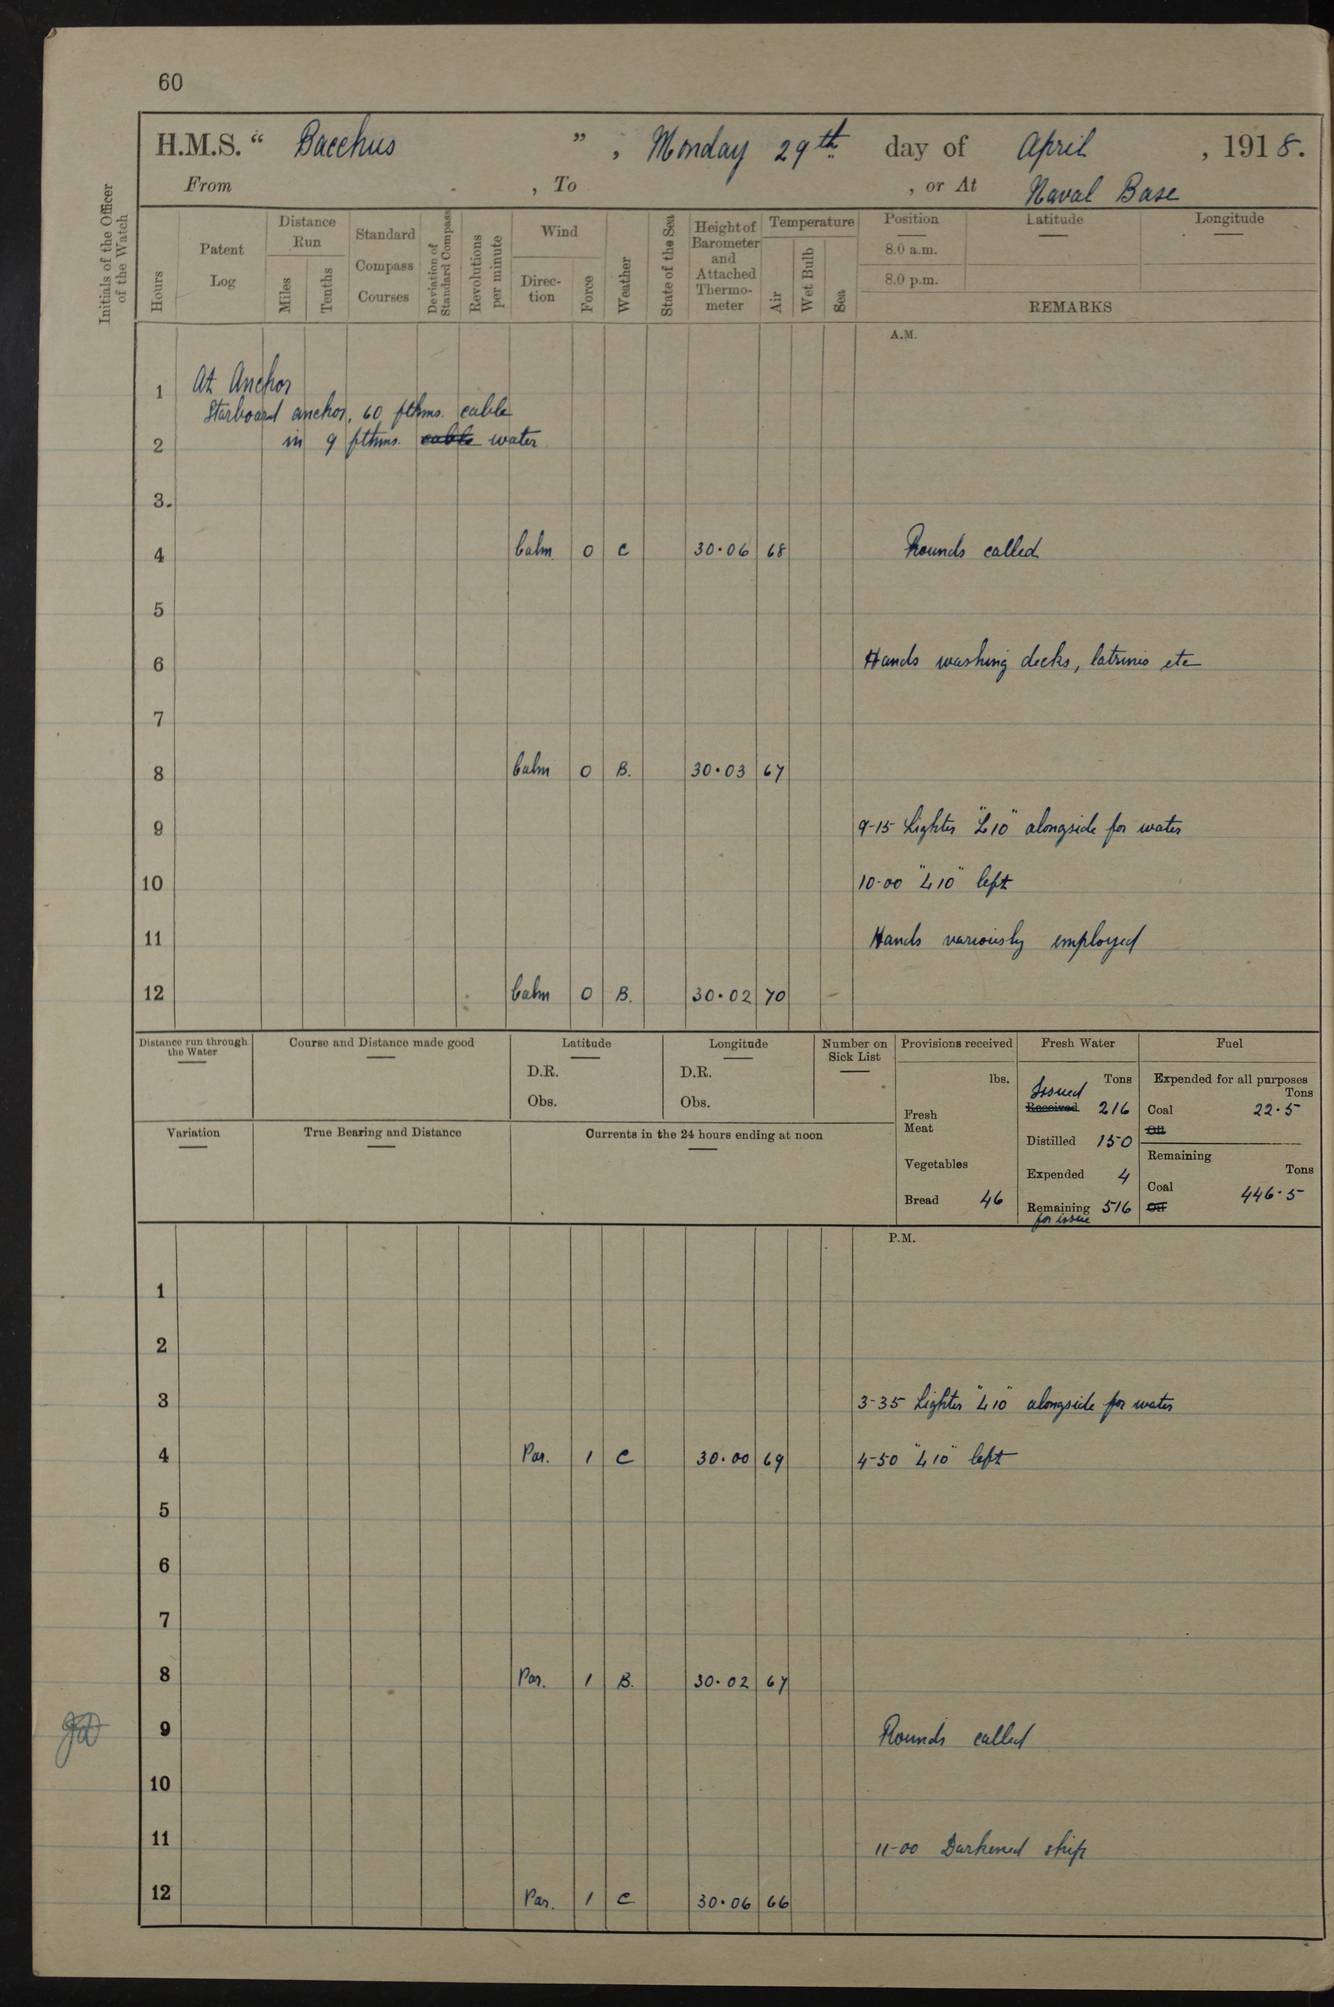 60
H.M.S. “ Bacchus ” , Monday 29th day of April , 1918.
From , To , or At Naval Base
Initials of the Officer of the Watch
Hours
Patent Log
Distance Run
Miles
Tenths
Standard Compass Courses
Deviation of Standard Compass
Revolutions per minute
Wind
Direc-tion
Force
Weather
State of the Sea
Height of Barometer and Attached Thermo-meter
Temperature
Air
Wet Bulb
Sea
Position Latitude Longitude
8.0 a.m.
8.0 p.m.
REMARKS
A.M.
1 At Anchor
Starboard anchor, 60 fthms. cable
2 in 9 fthms. cable water
3.
4 Calm 0 C 30.06 68 Rounds called
5
6 Hands washing decks, latrines etc
7
8 Calm 0 B. 30.03 67
9 9-15 Lighter "L10" alongside for water
10 10-00 "L10" left
11 Hands variously employed
12 Calm 0 B. 30.02 70
Distance run through the Water
Course and Distance made good
Latitude
D.R.
Obs.
Longitude
D.R.
Obs.
Number on Sick List
Variation
True Bearing and Distance
Currents in the 24 hours ending at noon
Provisions received
lbs.
Fresh Meat
Vegetables
Bread 46
Fresh Water
Tons
Issued
Received 216
Distilled 150
Expended 4
Remaining 516
for issue
Fuel
Expended for all purposes
Tons
Coal 22.5
Oil
Remaining
Tons
Coal 446.5
Oil
P.M.
1
2
3 3-35 Lighter "L10" alongside for water
4 Par. 1 C 30.00 69 4-50 "L10" left
5
6
7
8 Par. 1 B. 30.02 67
9 Rounds called
10
11 11-00 Darkened ship
12 Par. 1 C 30.06 66